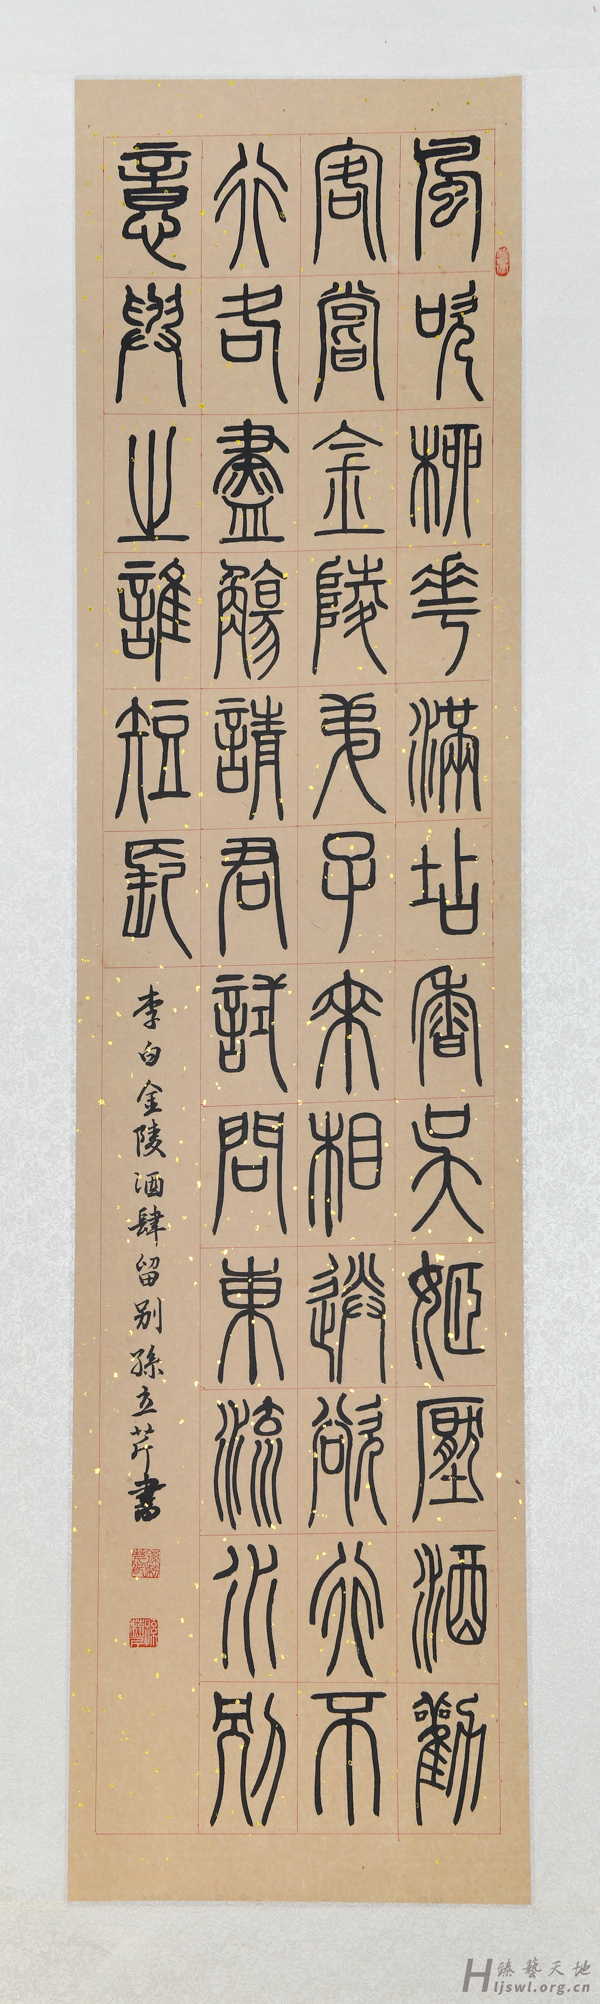 風吹柳花滿坫香吳姬壓酒勸
客嘗金陵弟子來相送欲行不
行各盡觴請君試問東流水別
意與之誰短長
李白金陵酒肆留别孫立芹書
臻藝天地
Hljswl.org.cn